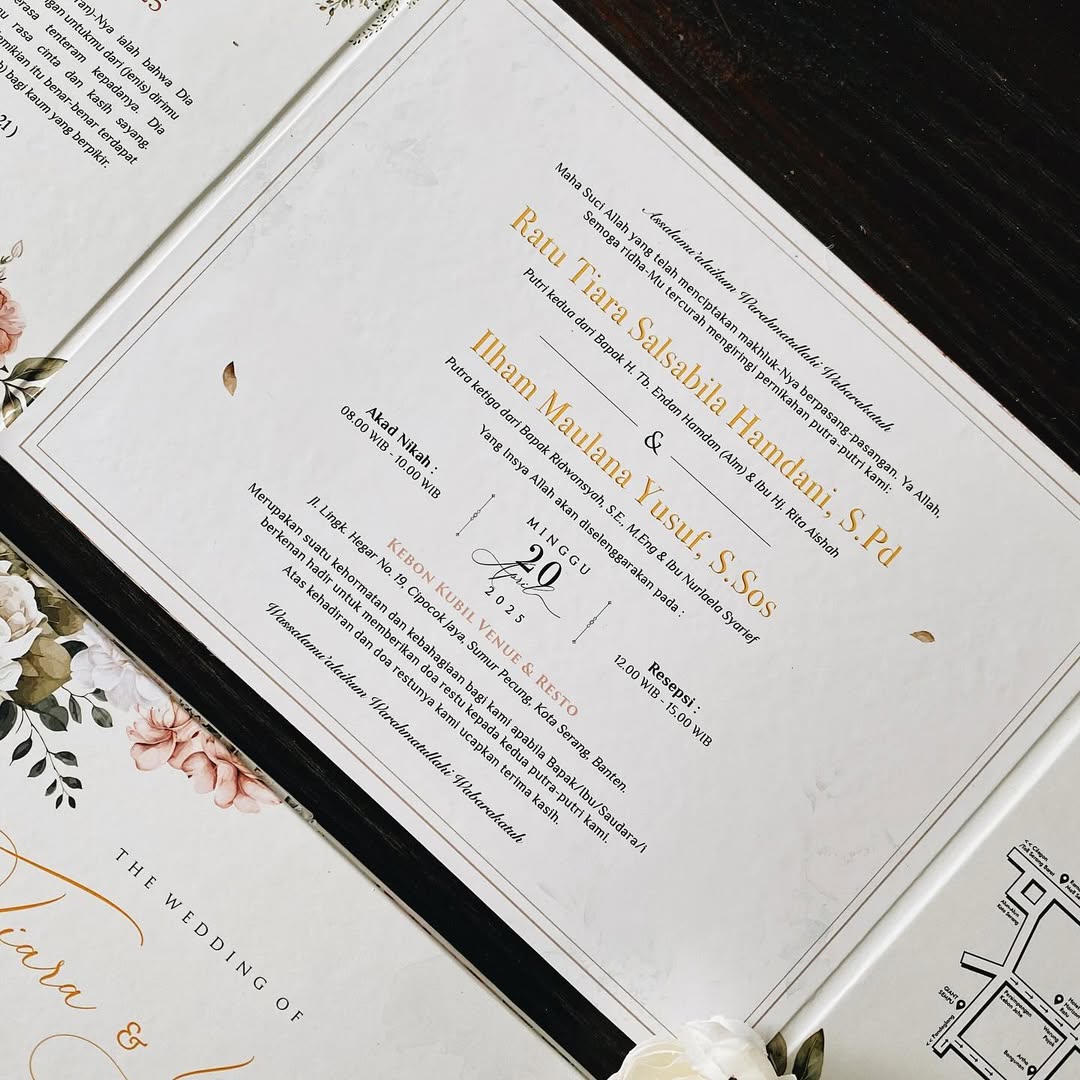 (an)-Nya ialah bahwa Dia
untukmu dari (jenis) dirimu
merasa tenteram kepadanya. Dia
rasa cinta dan kasih sayang.
demikian itu benar-benar terdapat
bagi kaum yang berpikir.
21 )
Assalamu'alaikum Warahmatullahi Wabarakatuh
Maha Suci Allah yang telah menciptakan makhluk-Nya berpasang-pasangan. Ya Allah,
Semoga ridha-Mu tercurah mengiringi pernikahan putra-putri kami:
Ratu Tiara Salsabila Hamdani, S.Pd
Putri kedua dari Bapak H. Tb. Endan Hamdan (Alm) & Ibu Hj. Rita Aishah
&
Ilham Maulana Yusuf, S.Sos
Putra ketiga dari Bapak Ridwansyah, S.E., M.Eng & Ibu Nurlaela Syarief
Yang Insya Allah akan diselenggarakan pada :
Akad Nikah :
08.00 WIB - 10.00 WIB
MINGGU
20
April
2025
Resepsi :
12.00 WIB - 15.00 WIB
KEBON KUBIL VENUE & RESTO
Jl. Lingk. Hegar No. 19, Cipocok Jaya, Sumur Pecung, Kota Serang, Banten.
Merupakan suatu kehormatan dan kebahagiaan bagi kami apabila Bapak/Ibu/Saudara/i
berkenan hadir untuk memberikan doa restu kepada kedua putra-putri kami.
Atas kehadiran dan doa restunya kami ucapkan terima kasih.
Wassalamu'alaikum Warahmatullahi Wabarakatuh
THE WEDDING OF
Tiara
&
<< Cilegon
/Toll Serang Barat
Alun-Alun
Kota Serang
GIANT
SEMPU
<< Pandeglang
Persimpangan
Kebon Jahe
Warung
Pojok
Artha
Bangunan